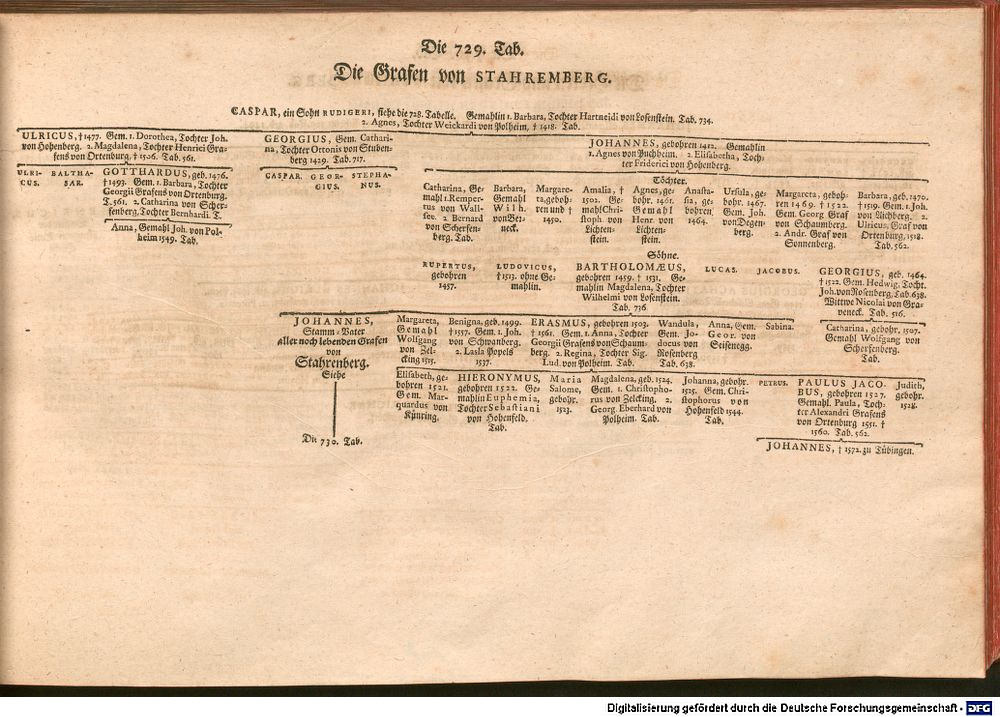 Die 729. Tab.
Die Grafen von STAHREMBERG.
CASPAR, ein Sohn RUDIGERI, siehe die 728. Tabelle. Gemahlin 1. Barbara, Tochter Hartneidi von Losenstein. Tab. 734.
2. Agnes, Tochter Weickardi von Polheim, † 1418. Tab.
ULRICUS, † 1477. Gem. 1. Dorothea, Tochter Joh.
von Hohenberg. 2. Magdalena, Tochter Henrici Gra-
fens von Ortenburg † 1506. Tab. 561.
GEORGIUS, Gem. Cathari-
na, Tochter Ottonis von Stuben-
berg 1429. Tab. 717.
JOHANNES, gebohren 1412. Gemahlin
1. Agnes von Puchheim. 2. Elisabetha, Toch-
ter Friderici von Hohenberg.
ULRI-
CUS.
BALTHA-
SAR.
GOTTHARDUS, geb. 1476.
† 1493. Gem. 1. Barbara, Tochter
Georgii Grafens von Ortenburg.
T. 561. 2. Catharina von Scher-
fenberg, Tochter Bernhardi. T.
Anna, Gemahl Joh. von Pol-
heim 1549. Tab.
CASPAR.
GEOR-
GIUS.
STEPHA-
NUS.
Töchter.
Catharina, Ge-
mahl 1. Remper-
tus von Wall-
see. 2. Bernard
von Scherfen-
berg. Tab.
Barbara,
Gemahl
Wilh.
von Ber-
neck.
Margare-
ta, geboh-
ren und †
1450.
Amalia, †
1502. Ge-
mahl Chri-
stoph. von
Lichten-
stein.
Agnes, ge-
bohr. 1461.
Gemahl
Henr. von
Lichten-
stein.
Anasta-
sia, ge-
bohren
1464.
Ursula, ge-
bohr. 1467.
Gem. Joh.
von Degen-
berg.
Margareta, geboh-
ren 1469. † 1522.
Gem. Georg Graf
von Schaumberg.
2. Andr. Graf von
Sonnenberg.
Barbara, geb. 1470.
† 1519. Gem. 1. Joh.
von Aichberg. 2.
Ulricus, Graf von
Ortenburg, 1518.
Tab. 562.
Söhne.
RUPERTUS,
gebohren
1457.
LUDOVICUS,
† 1513. ohne Ge-
mahlin.
BARTHOLOMÆUS,
gebohren 1459. † 1531. Ge-
mahlin Magdalena, Tochter
Wilhelmi von Losenstein.
Tab. 736
LUCAS.
JACOBUS.
GEORGIUS, geb. 1464.
† 1522. Gem. Hedwig, Tocht.
Joh. von Rosenberg, Tab. 638.
Wittwe Nicolai von Gra-
veneck. Tab. 516.
JOHANNES,
Stamm-Vater
aller noch lebenden Grafen
von
Stahrenberg.
Siehe
Die 730. Tab.
Margareta,
Gemahl
Wolfgang
von Zel-
cking 1515.
Benigna, geb. 1499.
† 1557. Gem. 1. Joh.
von Schwanberg.
2. Lasla Popels
1537.
ERASMUS, gebohren 1503.
† 1561. Gem. 1. Anna, Tochter
Georgii Grafens von Schaum-
berg. 2. Regina, Tochter Sig.
Lud. von Polheim. Tab.
Wandula,
Gem. Jo-
docus von
Rosenberg
Tab. 638.
Anna, Gem.
Geor. von
Seisenegg.
Sabina.
Catharina, gebohr. 1507.
Gemahl Wolfgang von
Scherfenberg.
Tab.
Elisabeth, ge-
bohren 1521.
Gem. Mar-
quardus von
Künring.
HIERONYMUS,
gebohren 1522. Ge-
mahlin Euphemia,
Tochter Sebastiani
von Hohenfeld.
Tab.
Maria
Salome,
gebohr.
1523.
Magdalena, geb. 1524.
Gem. 1. Christopho-
rus von Zelcking. 2.
Georg. Eberhard von
Polheim. Tab.
Johanna, gebohr.
1525. Gem. Chri-
stophorus von
Hohenfeld 1544.
Tab.
PETRUS.
PAULUS JACO-
BUS, gebohren 1527.
Gemahl. Paula, Toch-
ter Alexandri Grafens
von Ortenburg 1551. †
1560. Tab. 562.
Judith,
gebohr.
1528.
JOHANNES, † 1572. zu Tübingen.
Digitalisierung gefördert durch die Deutsche Forschungsgemeinschaft - DFG